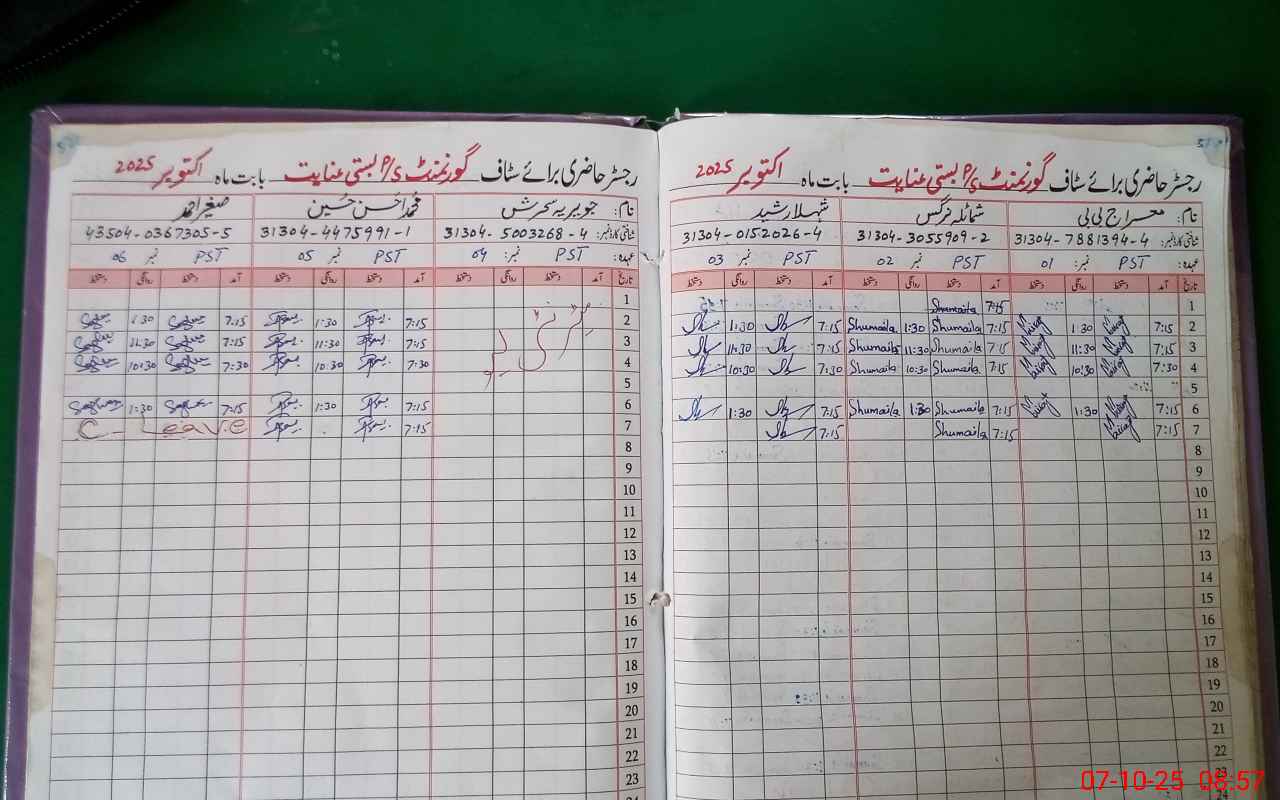 رجسٹر حاضری برائے سٹاف گورنمنٹ P/S بستی عنایت بابت ماہ اکتوبر 2025
نام: معراج بی بی شمائلہ نرگس شہلا رشید
شناختی کارڈ نمبر: 31304-7881394-4 31304-3055909-2 31304-0152026-4
عہدہ: PST نمبر: 01 PST نمبر 02 PST نمبر 03
تاریخ آمد دستخط روانگی دستخط آمد دستخط روانگی دستخط آمد دستخط روانگی دستخط
1 7:15 Shumaila
2 7:15 1:30 7:15 Shumaila 1:30 Shumaila 7:15 1:30
3 7:15 11:30 7:15 Shumaila 11:30 Shumaila 7:15 11:30
4 7:30 10:30 7:15 Shumaila 10:30 Shumaila 7:30 10:30
5
6 7:15 1:30 7:15 Shumaila 1:30 Shumaila 7:15 1:30
7 7:15 7:15 Shumaila 7:15
8
9
10
11
12
13
14
15
16
17
18
19
20
21
22
23
24
رجسٹر حاضری برائے سٹاف گورنمنٹ P/S بستی عنایت بابت ماہ اکتوبر 2025
جویریہ سحرش محمد احسن حسین صغیر احمد
31304-5003268-4 31304-4475991-1 43504-0367305-5
PST نمبر: 04 PST نمبر 05 PST نمبر 06
تاریخ آمد دستخط روانگی دستخط آمد دستخط روانگی دستخط آمد دستخط روانگی دستخط
1
میٹرنٹی لیو
2 7:15 1:30 7:15 1:30
3 7:15 11:30 7:15 11:30
4 7:30 10:30 7:30 10:30
5
6 7:15 1:30 7:15 1:30
7 7:15 C-Leave
8
9
10
11
12
13
14
15
16
17
18
19
20
21
22
23
07-10-25 08:57